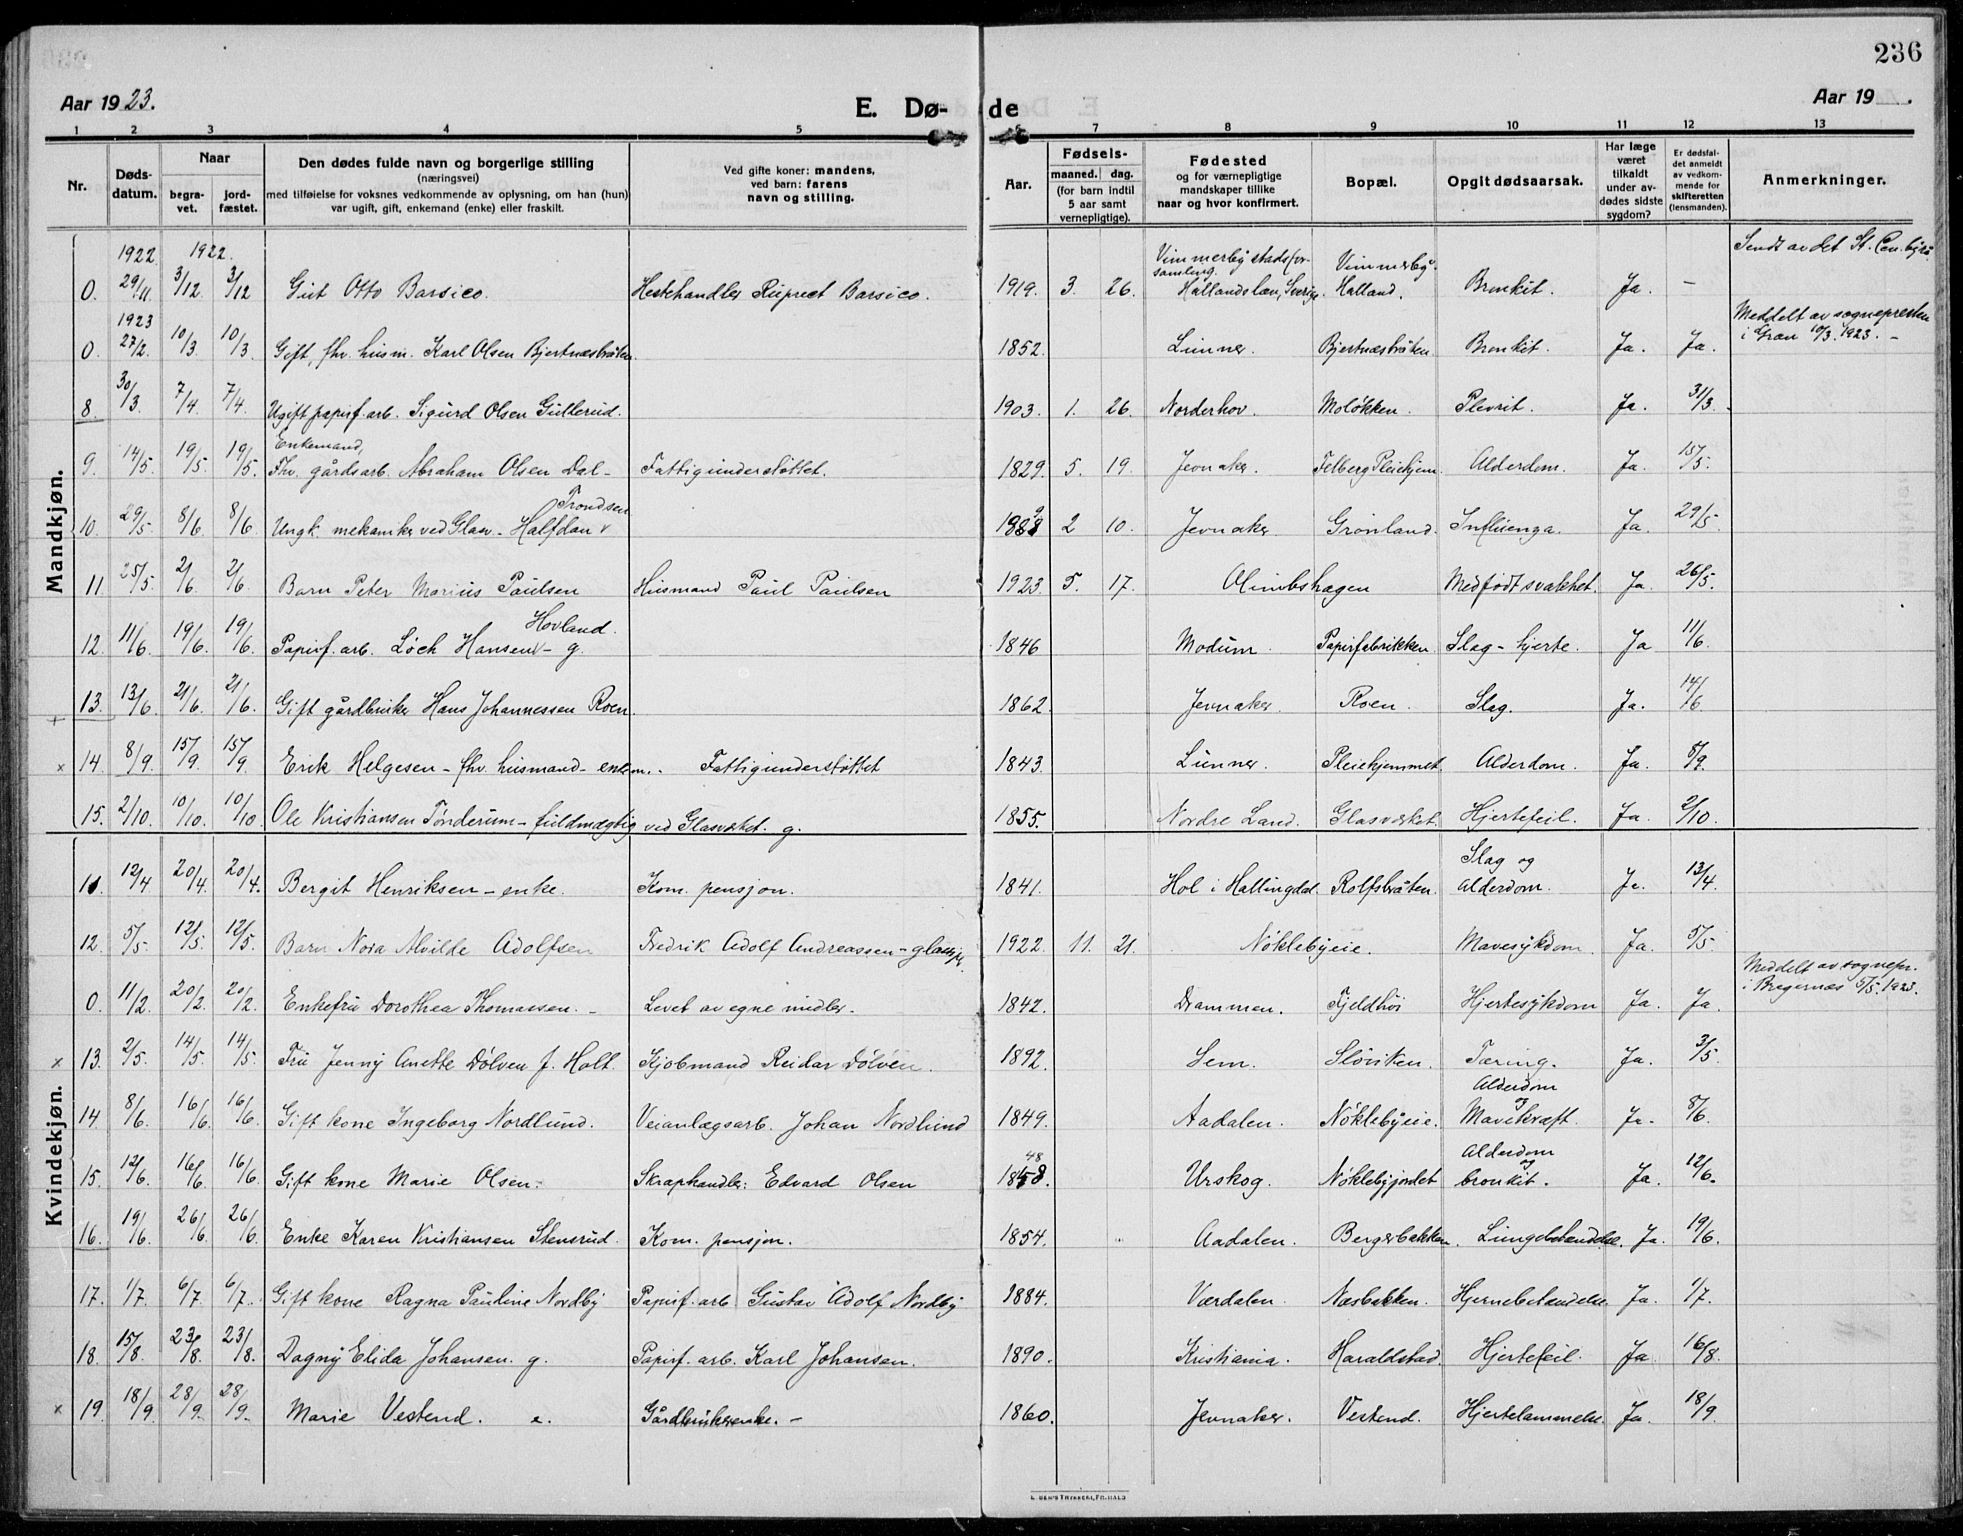 236
Aar 1923.
E. Dø- de
Aar 19 .
1 2 3 4 5 6 7 8 9 10 11 12 13
Nr.
Døds-
datum.
Naar
begra-
vet.
jord-
fæstet.
Den dødes fulde navn og borgerlige stilling
(næringsvei)
med tilføielse for voksnes vedkommende av oplysning, om han (hun)
var ugift, gift, enkemand (enke) eller fraskilt.
Ved gifte koner: mandens,
ved barn: farens
navn og stilling.
Aar.
Fødsels-
maaned. dag.
(for barn indtil
5 aar samt
vernepligtige).
Fødested
og for værnepligtige
mandskaper tillike
naar og hvor konfirmert.
Bopæl.
Opgit dødsaarsak.
Har læge
været
tilkaldt
under av-
dødes sidste
sygdom?
Er dødsfal-
det anmeldt
av vedkom-
mende for
skifteretten
(lensmanden).
Anmerkninger.
Mandkjøn.
1922 1922. Vimmerby stadsfor- samling. Vimmerby. Sendt av det St. Cen. byrå
0. 29/11. 3/12 3/12 Gut Otto Barsico. Hestehandler Ruprect Barsico. 1919. 3. 26. Hallandslæn, Sverige. Halland. Bronkit. Ja. –
1923 Meddelt av sognepresten
0. 27/2. 10/3. 10/3. Gift, fhv. husm. Karl Olsen Bjertnæsbråten 1852. Lunner. Bjertnæsbråten Bronkit. Ja. Ja. i Gran 10/3. 1923. –
8. 30/3 7/4. 7/4. Ugift papirf. arb. Sigurd Olsen Gullerud. 1903. 1. 26. Norderhov. Moløkken. Plevrit. Ja. 31/3.
Enkemand,
9. 14/5. 19/5. 19/5. Fhv. gårdsarb. Abraham Olsen Dal – Fattigunderstøttet. 1829. 5. 19. Jevnaker. Felberg Pleiehjem. Alderdom. Ja. 15/5.
Trondsen
10. 29/5. 8/6 8/6 Ungk. mekaniker ved Glasv. – Halfdan v 2 10. Jevnaker Grønland. Influenga. Ja. 29/5.
11 25/5. 2/6. 2/6. Barn Peter Marius Paulsen Husmand Paul Paulsen 1923. 5. 17. Olimbshagen Medfødt svakhet. Ja. 26/5.
Hovland.
12. 11/6. 19/6. 19/6. Papirf. arb. Løch Hansen v – g. 1846 Modum. Papirfabrikken Slag – hjerte. Ja 11/6.
13. 13/6. 21/6. 21/6. Gift gårdbruker Hans Johannessen Roen. 1862. Jevnaker. Roen. Slag. Ja. 14/6.
+
x 14. 8/9. 15/9. 15/9. Erik Helgesen – fhv. husmand – enkem. Fattigunderstøttet 1843. Lunner. Pleiehjemmet. Alderdom. Ja. 8/9.
15. 2/10. 10/10. 10/10. Ole Kristiansen Tønderum – fuldmægtig ved Glasverket. g. 1855. Nordre Land. Glasverket. Hjertefeil. Ja. 2/10.
Kvindekjøn.
Slag og
11. 12/4 20/4. 20/4. Bergit Henriksen – enke. Kom. pensjon. 1841. Hol i Hallingdal. Rolfsbråten. Alderdom. Ja. 13/4.
12. 5/5. 12/5. 12/5. Barn Nora Alvilde Adolfsen Fredrik Adolf Andreassen – 1922. 11. 21. Nøklebyeie. Mavesykdom. Ja. 5/5.
Meddelt av sognepr.
0. 11/2. 20/2. 20/2. Enkefru Dorothea Thomassen. – Levet av egne midler. 1842. Drammen. Fjeldhøi Hjertesykdom Ja. Ja. i Bragernæs 5/5. 1923.
x 13. 2/5. 14/5. 14/5. Fru Jenny Anette Dølven f. Holt. Kjøbmand Reidar Dølven. 1892. Sem. Sløviken. Tæring. Ja. 3/5.
Alderdom
14. 8/6. 16/6. 16/6. Gift kone Ingeborg Nordlund. Veianlægsarb. Johan Nordlund 1849. Aadalen. Nøklebyeie. og Mavekræft. Ja. 8/6.
48 Alderdom
15. 12/6. 16/6. 16/6. Gift kone Marie Olsen. Skraphandler: Edvard Olsen 1858. Urskog. Nøklebyjordet og bronkit. Ja. 12/6.
16. 19/6. 26/6. 26/6. Enke Karen Kristiansen Stensrud. Kom. pensjon. 1854. Aadalen. Bergerbakken. Lungebetændelse. Ja. 19/6.
17. 1/7. 6/7. 6/7. Gift kone Ragna Pauline Nordby Papirf. arb. Gustav Adolf Nordby 1884. Værdalen. Næsbakken. Hjernebetændelse. Ja. 1/7.
18. 15/8. 23/8. 23/8. Dagny Elida Johansen. g. Papirf. arb. Karl Johansen. 1890. Kristiania. Haraldstad. Hjertefeil. Ja. 16/8.
x 19. 18/9. 28/9. 28/9. Marie Vestend. e. Gårdbrukerenke. – 1860. Jevnaker. Vestend. Hjertelammelse. Ja. 18/9.